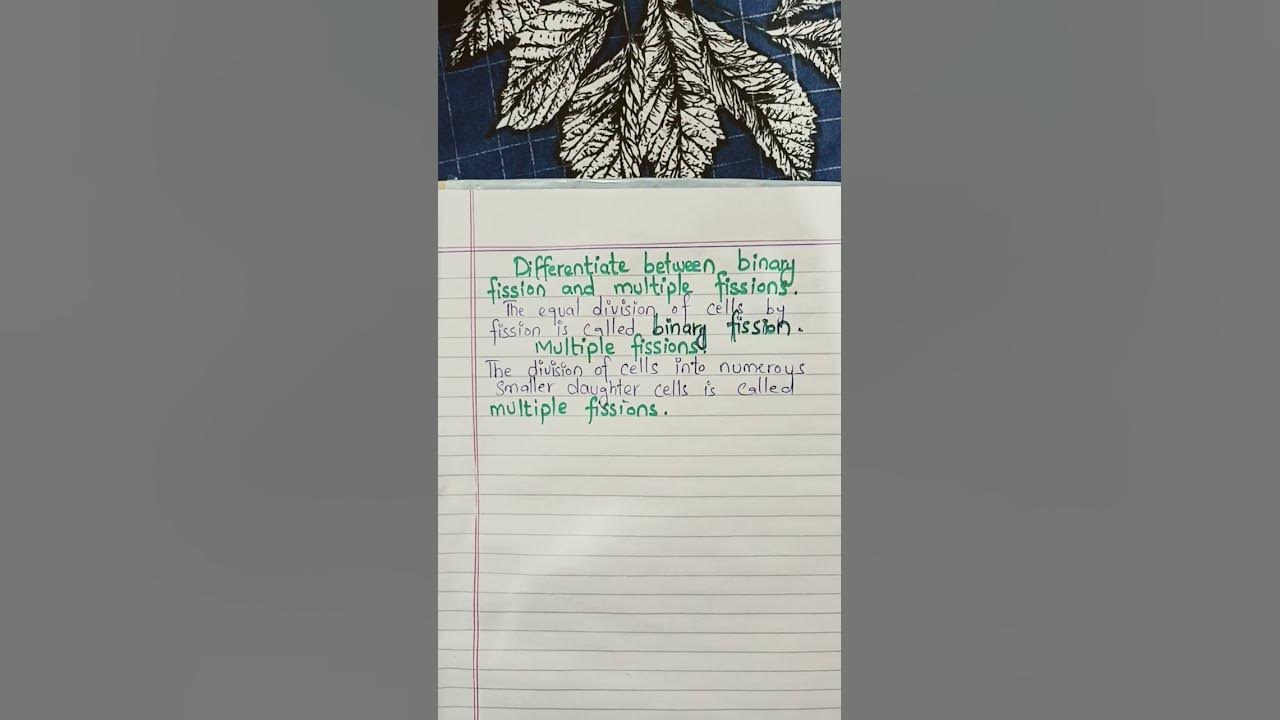 Differentiate between binary
fission and multiple fissions.
The equal division of cells by
fission is called binary fission.
Multiple fissions:
The division of cells into numerous
smaller daughter cells is called
multiple fissions.